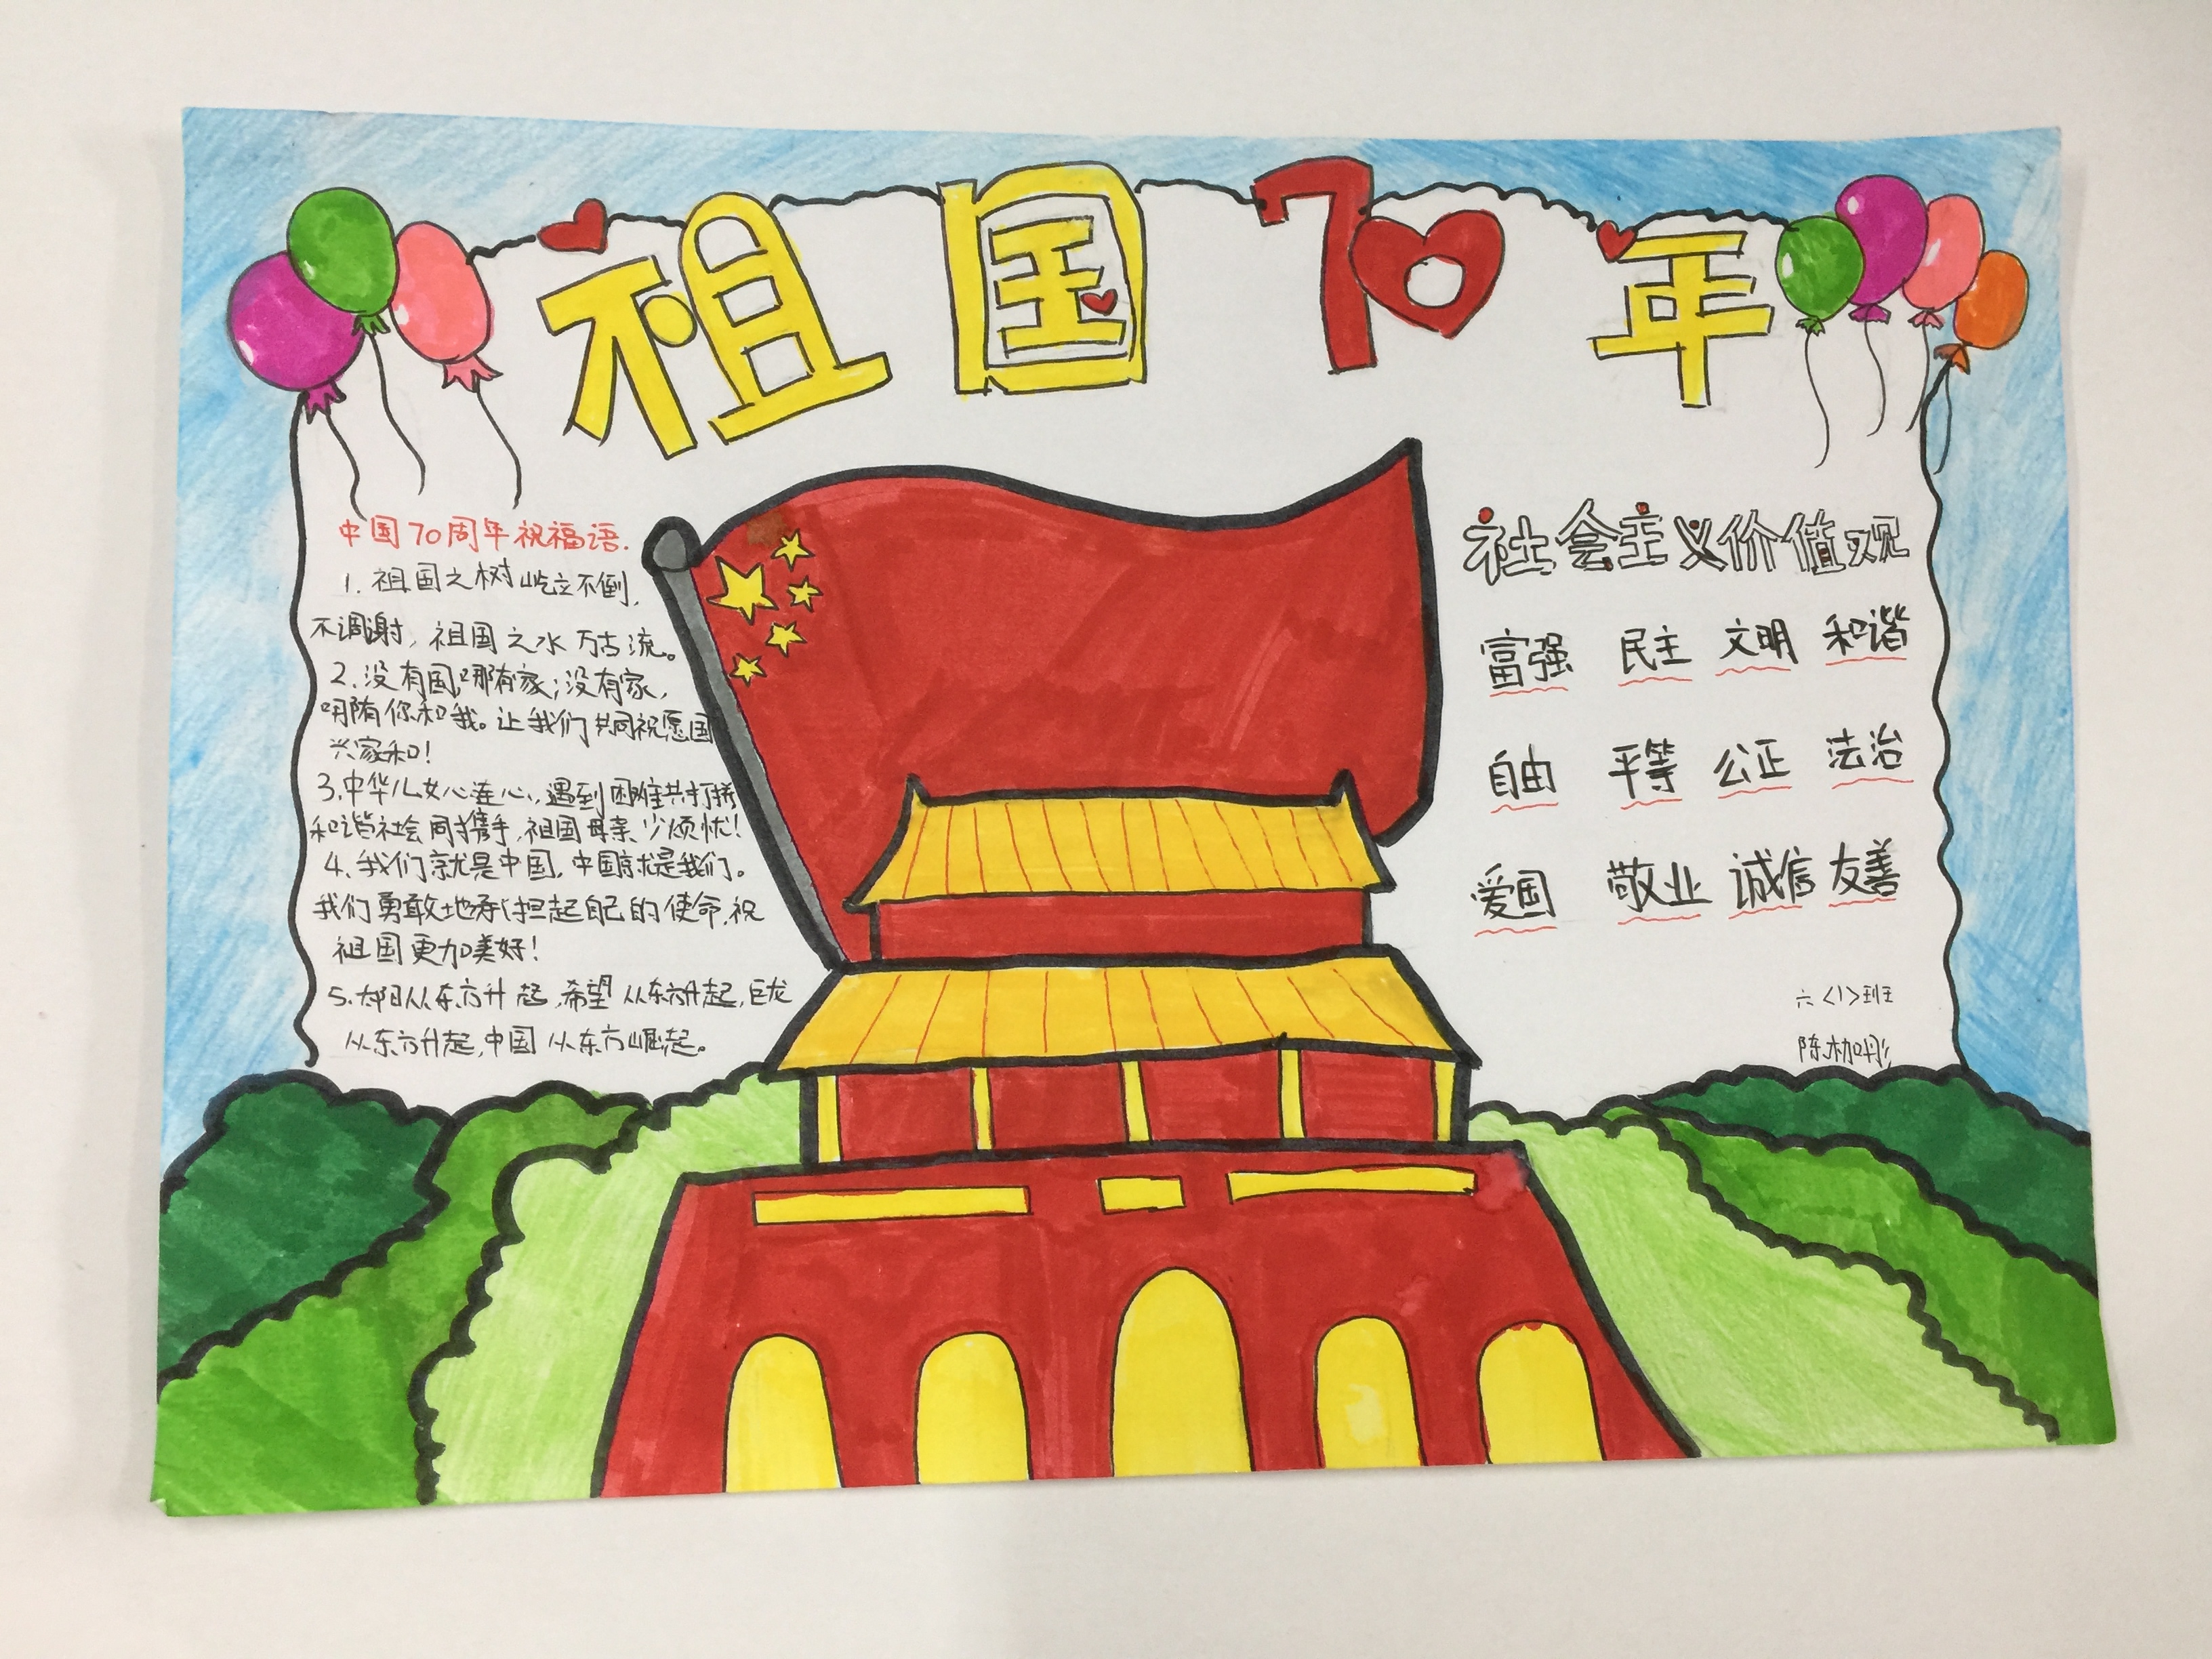 祖国70年
中国70周年祝福语.
1. 祖国之树屹立不倒,
不调谢, 祖国之水万古流。
2. 没有国,哪有家;没有家,
哪有你和我。让我们共同祝愿国
兴家和!
3. 中华儿女心连心, 遇到困难共打拼
和谐社会同携手, 祖国母亲少烦忧!
4. 我们就是中国, 中国就是我们。
我们勇敢地承担起自己的使命, 祝
祖国更加美好!
5. 太阳从东方升起, 希望从东方升起, 巨龙
从东方升起, 中国从东方崛起。
社会主义价值观
富强 民主 文明 和谐
自由 平等 公正 法治
爱国 敬业 诚信 友善
六<1>班
陈枷彤